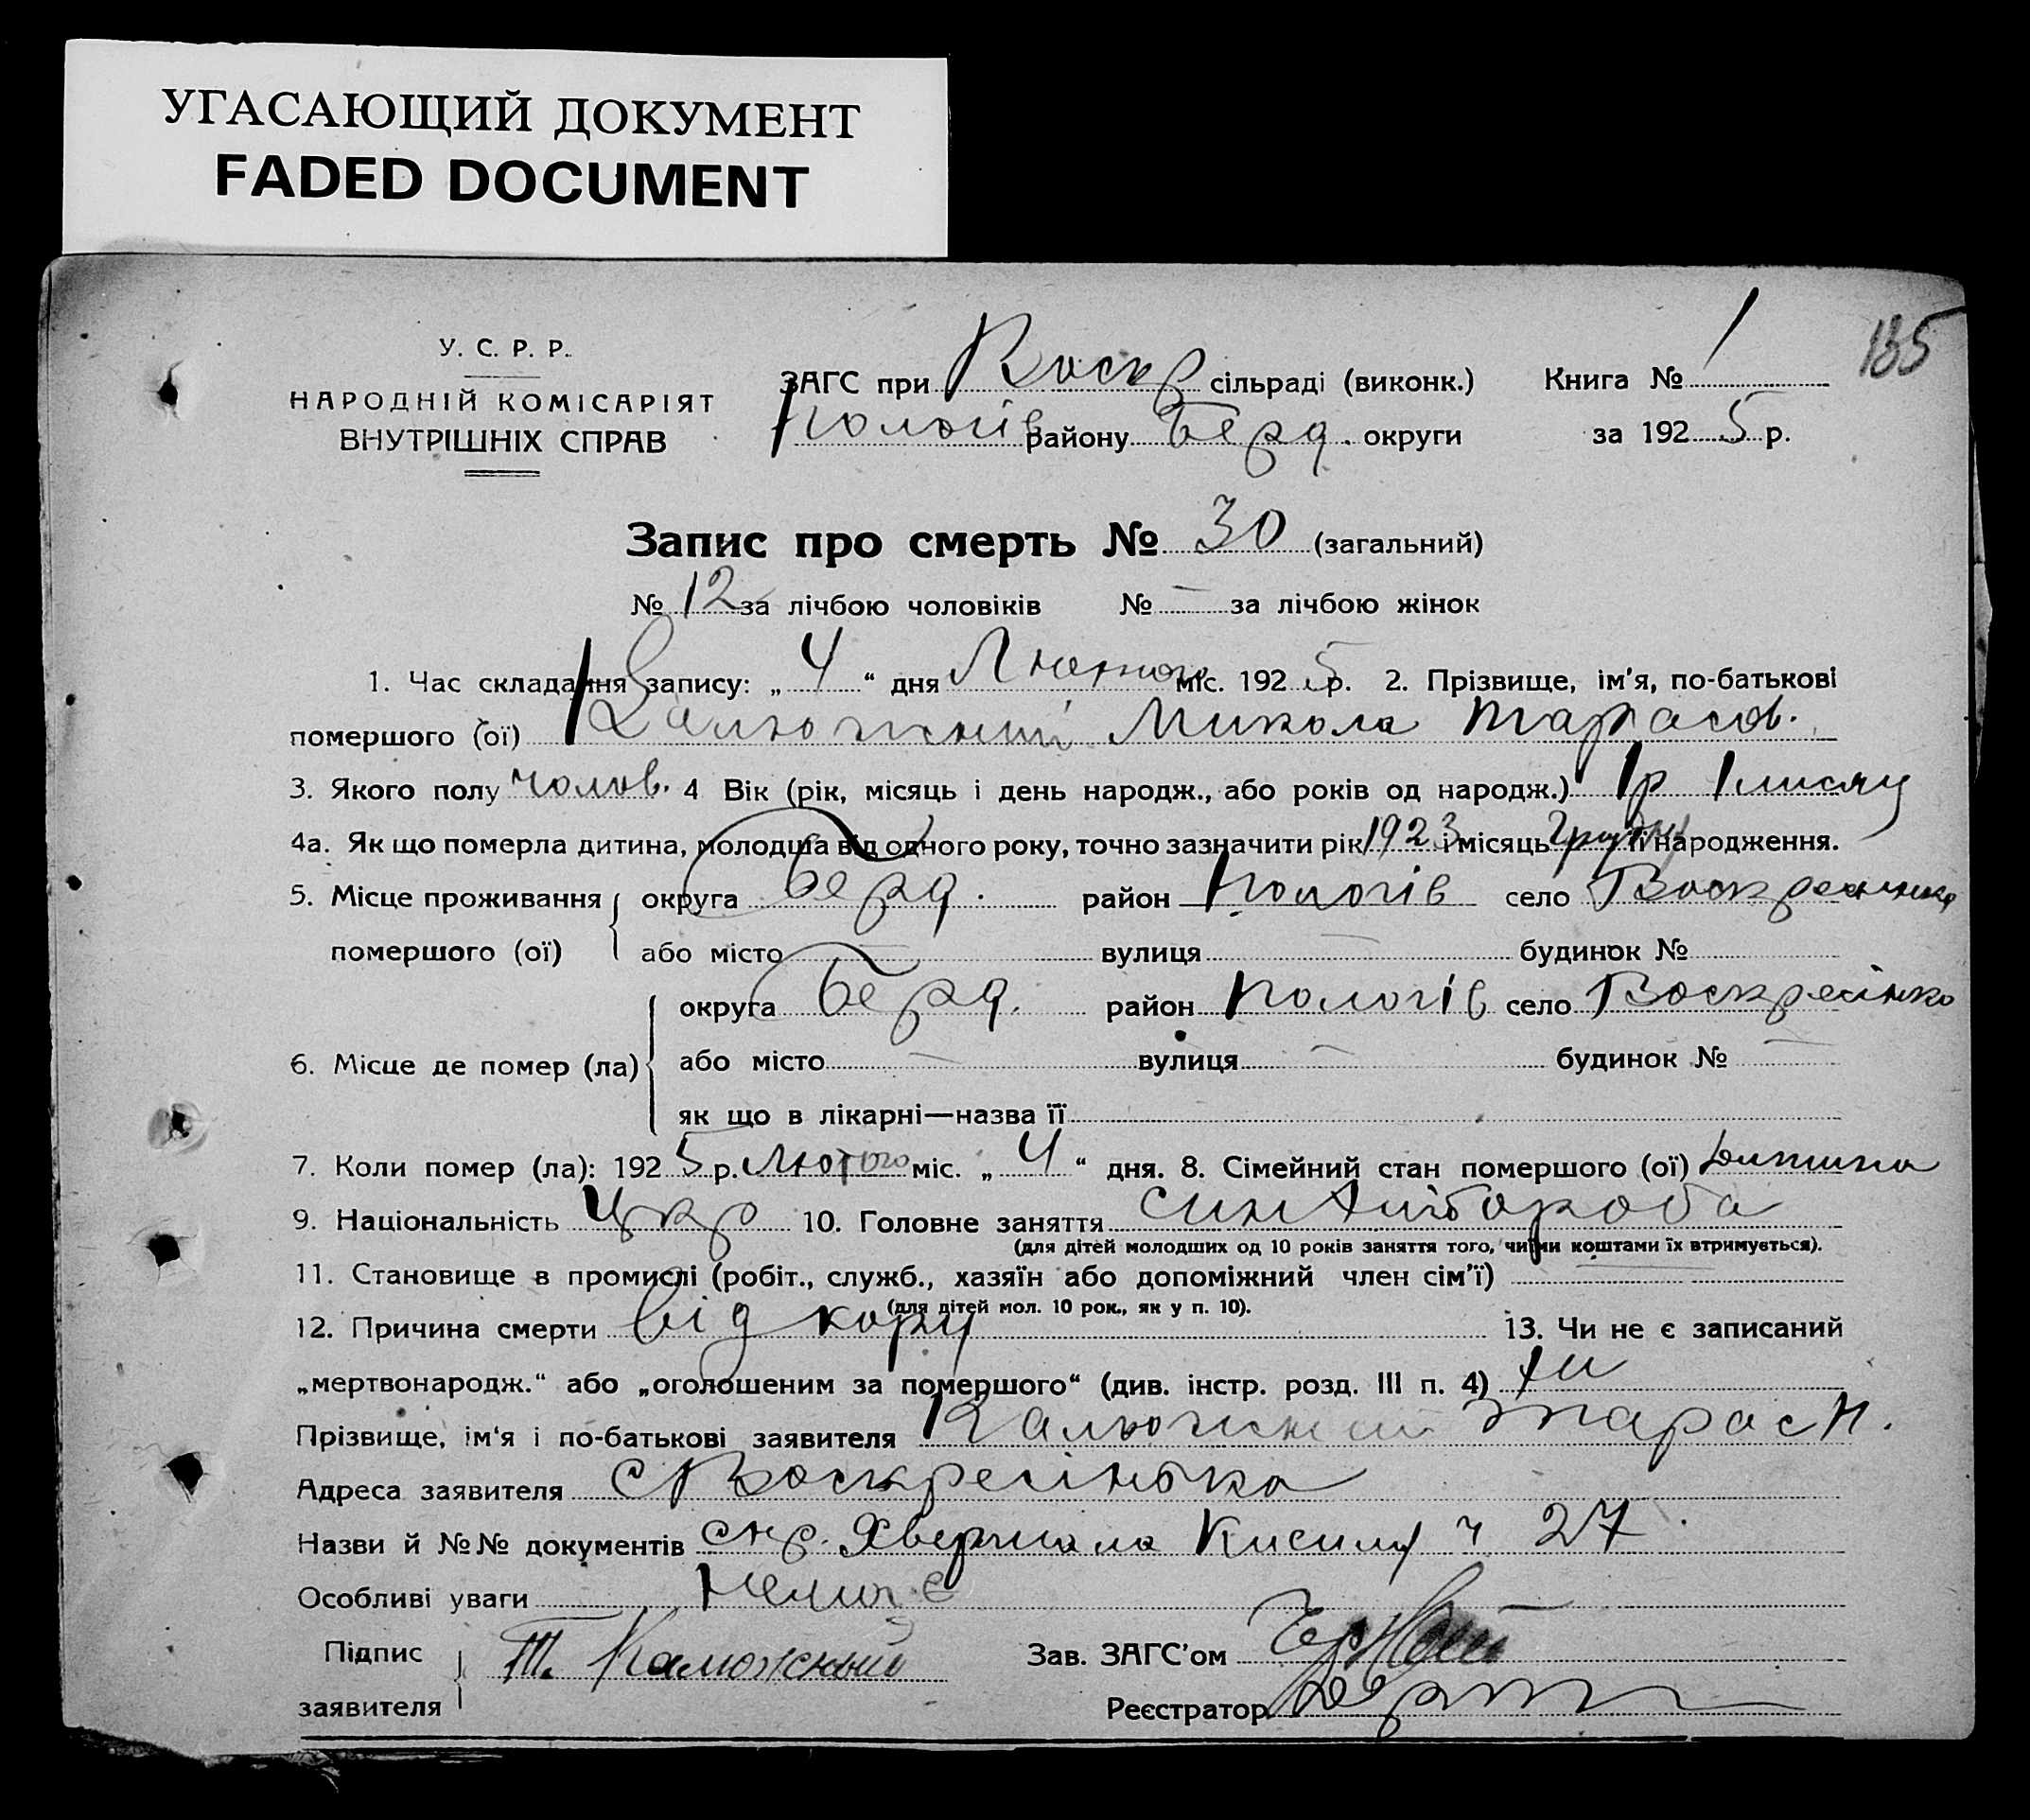 УГАСАЮЩИЙ ДОКУМЕНТ
FADED DOCUMENT
135
У. С. Р. Р.
НАРОДНІЙ КОМІСАРІЯТ
ВНУТРІШНІХ СПРАВ
ЗАГС при Воскр сільраді (виконк.) Книга № 1
Пологів району Берд. округи за 1925 р.
Запис про смерть № 30 (загальний)
№ 12 за лічбою чоловіків № — за лічбою жінок
1. Час складання запису: „ 4 “ дня Лютого міс. 1925 р. 2. Прізвище, ім'я, по-батькові
помершого (ої) Калюжний Микола Тарасов.
3. Якого полу чолов. 4 Вік (рік, місяць і день народж., або років од народж.) 1р 1 мисяц
4а. Як що померла дитина, молодша від одного року, точно зазначити рік 1923 і місяць її народження.
5. Місце проживання округа Берд. район Пологів село
помершого (ої) або місто — вулиця — будинок №
6. Місце де помер (ла) округа Берд. район Пологів село Воскресінко
або місто — вулиця — будинок № —
як що в лікарні—назва її
7. Коли помер (ла): 1925 р. Лютого міс. „ 4 “ дня. 8. Сімейний стан помершого (ої) Дитина
9. Національність Укр 10. Головне заняття син
(для дітей молодших од 10 років заняття того, чиїми коштами їх втримується).
11. Становище в промислі (робіт., служб., хазяїн або допоміжний член сім'ї)
(для дітей мол. 10 рок., як у п. 10).
12. Причина смерти від кору 13. Чи не є записаний
„мертвонародж.“ або „оголошеним за помершого“ (див. інстр. розд. III п. 4) ни
Прізвище, ім'я і по-батькові заявителя Калюжний Тарас Н.
Адреса заявителя с Воскресінька
Назви й №№ документів Кисиля ч 27
Особливі уваги Немає
Підпис заявителя Т. Калюжный Зав. ЗАГС'ом
Реєстратор